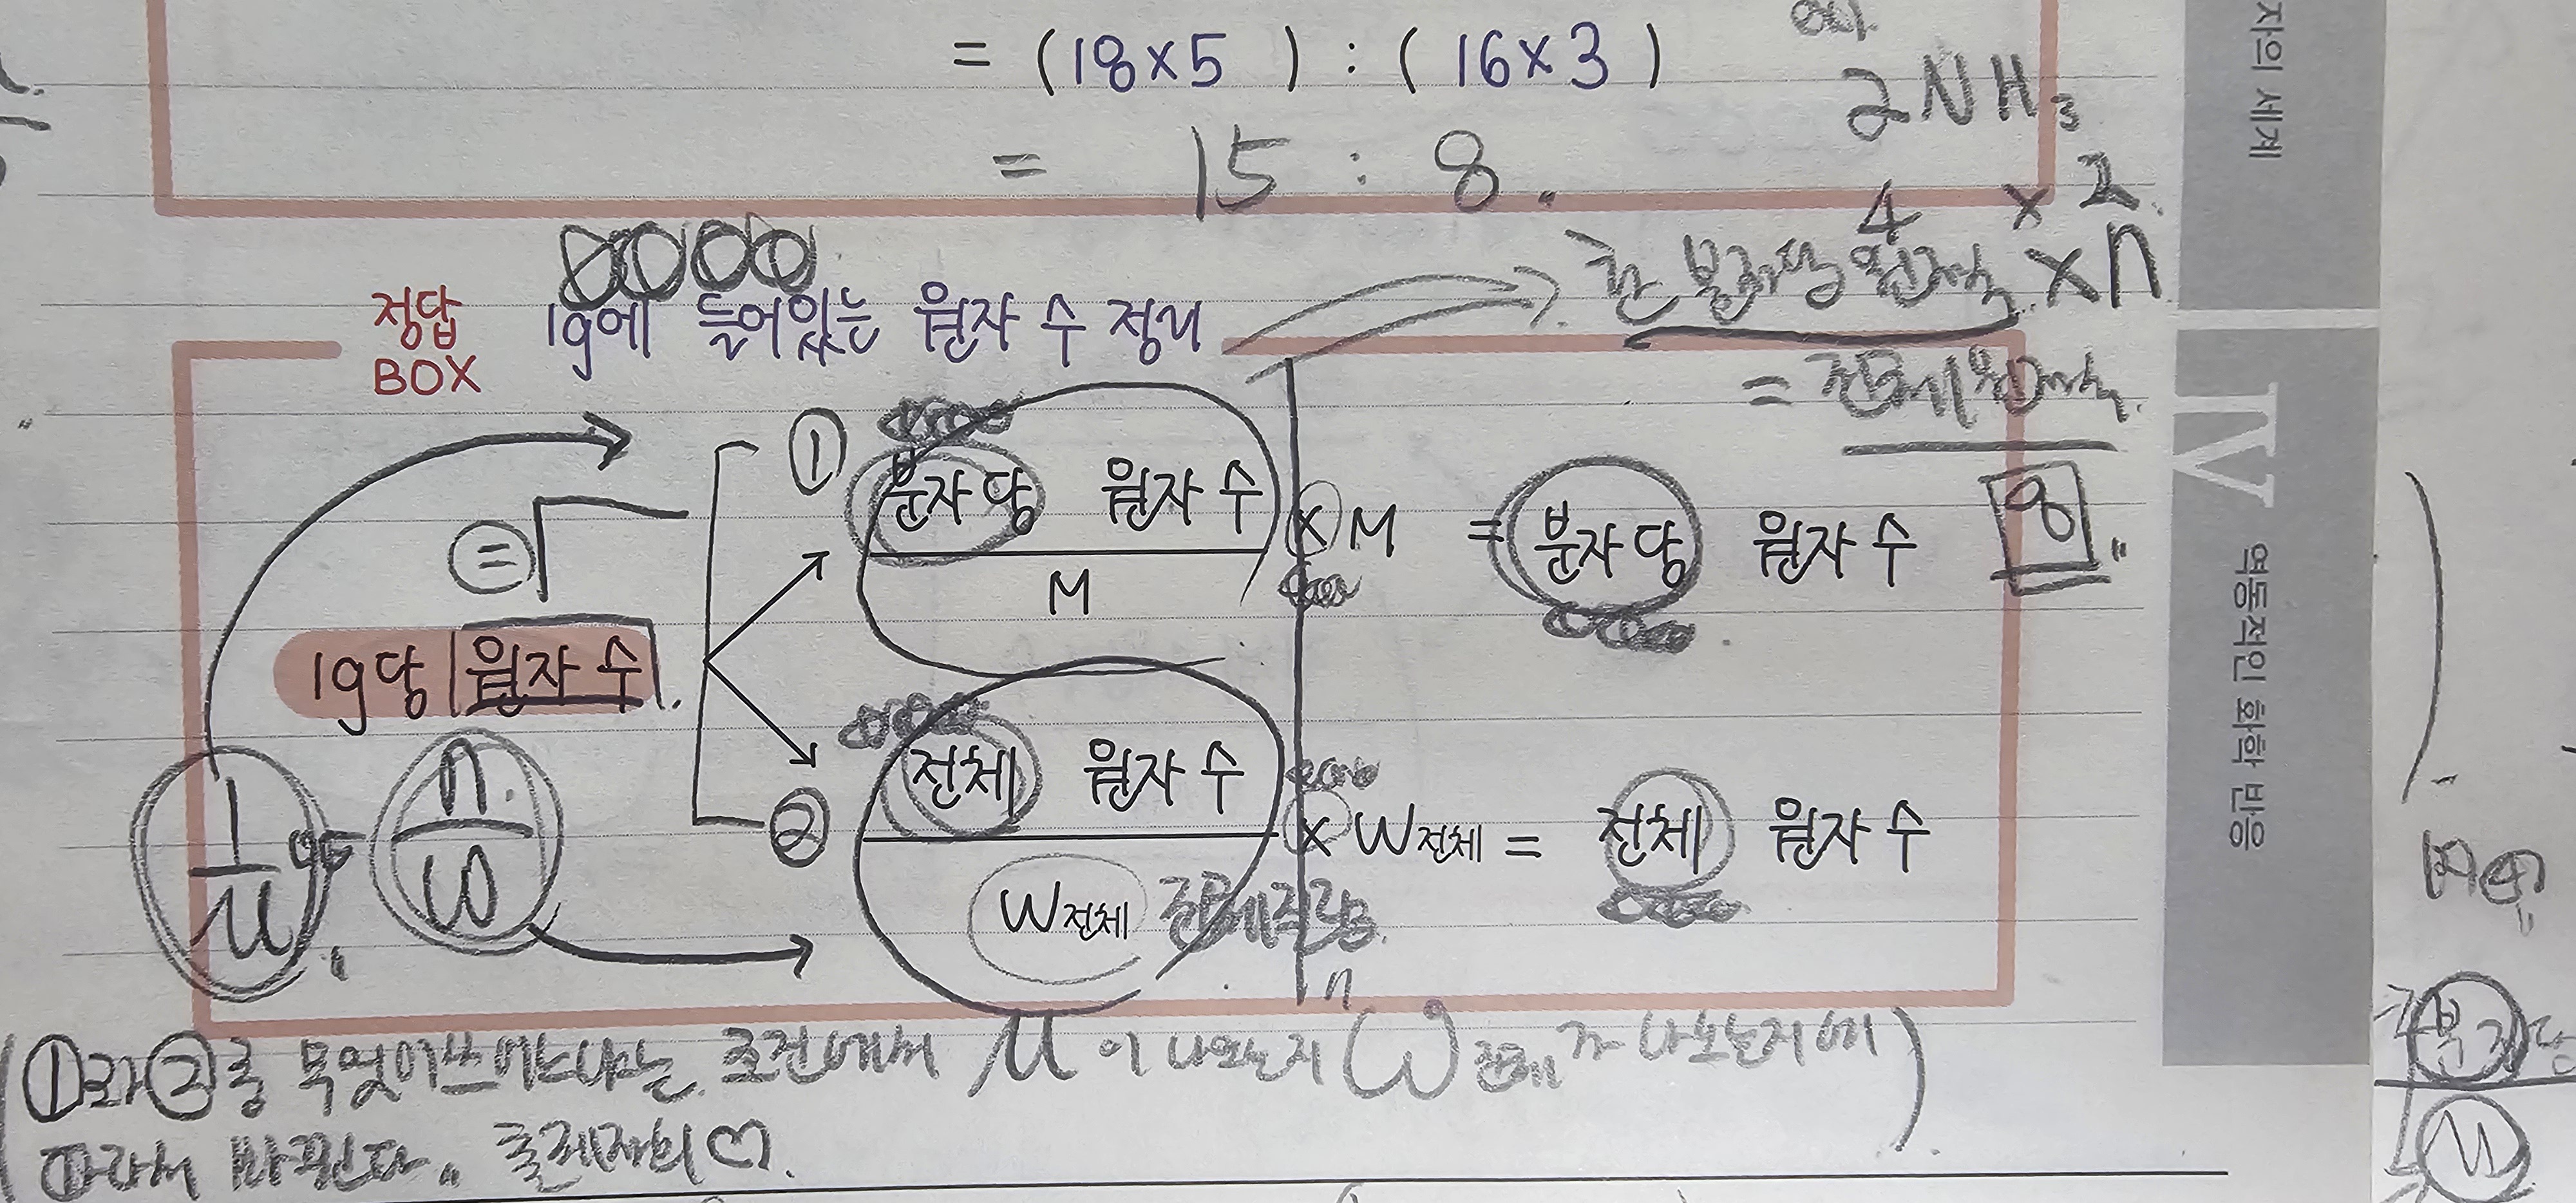 = (18×5) : (16×3)
2NH₃
= 15 : 8.
4 × 2.
한 분자당 원자수 × n
= 전체 원자수.
8
정답
BOX
1g에 들어있는 원자 수 정리
① 분자당 원자 수
M
× M = 분자당 원자 수
=
1g당 원자 수.
② 전체 원자 수
W전체 전체질량.
× W전체 = 전체 원자 수
1
M
n
W
n
(①과 ②중 무엇이 쓰이느냐는 조건에서 M이 나오는지 W전체가 나오는지에)
따라서 바뀐다. 출제자의 ♡.
자의 세계
IV
역동적인 화학 반응
분자당
M